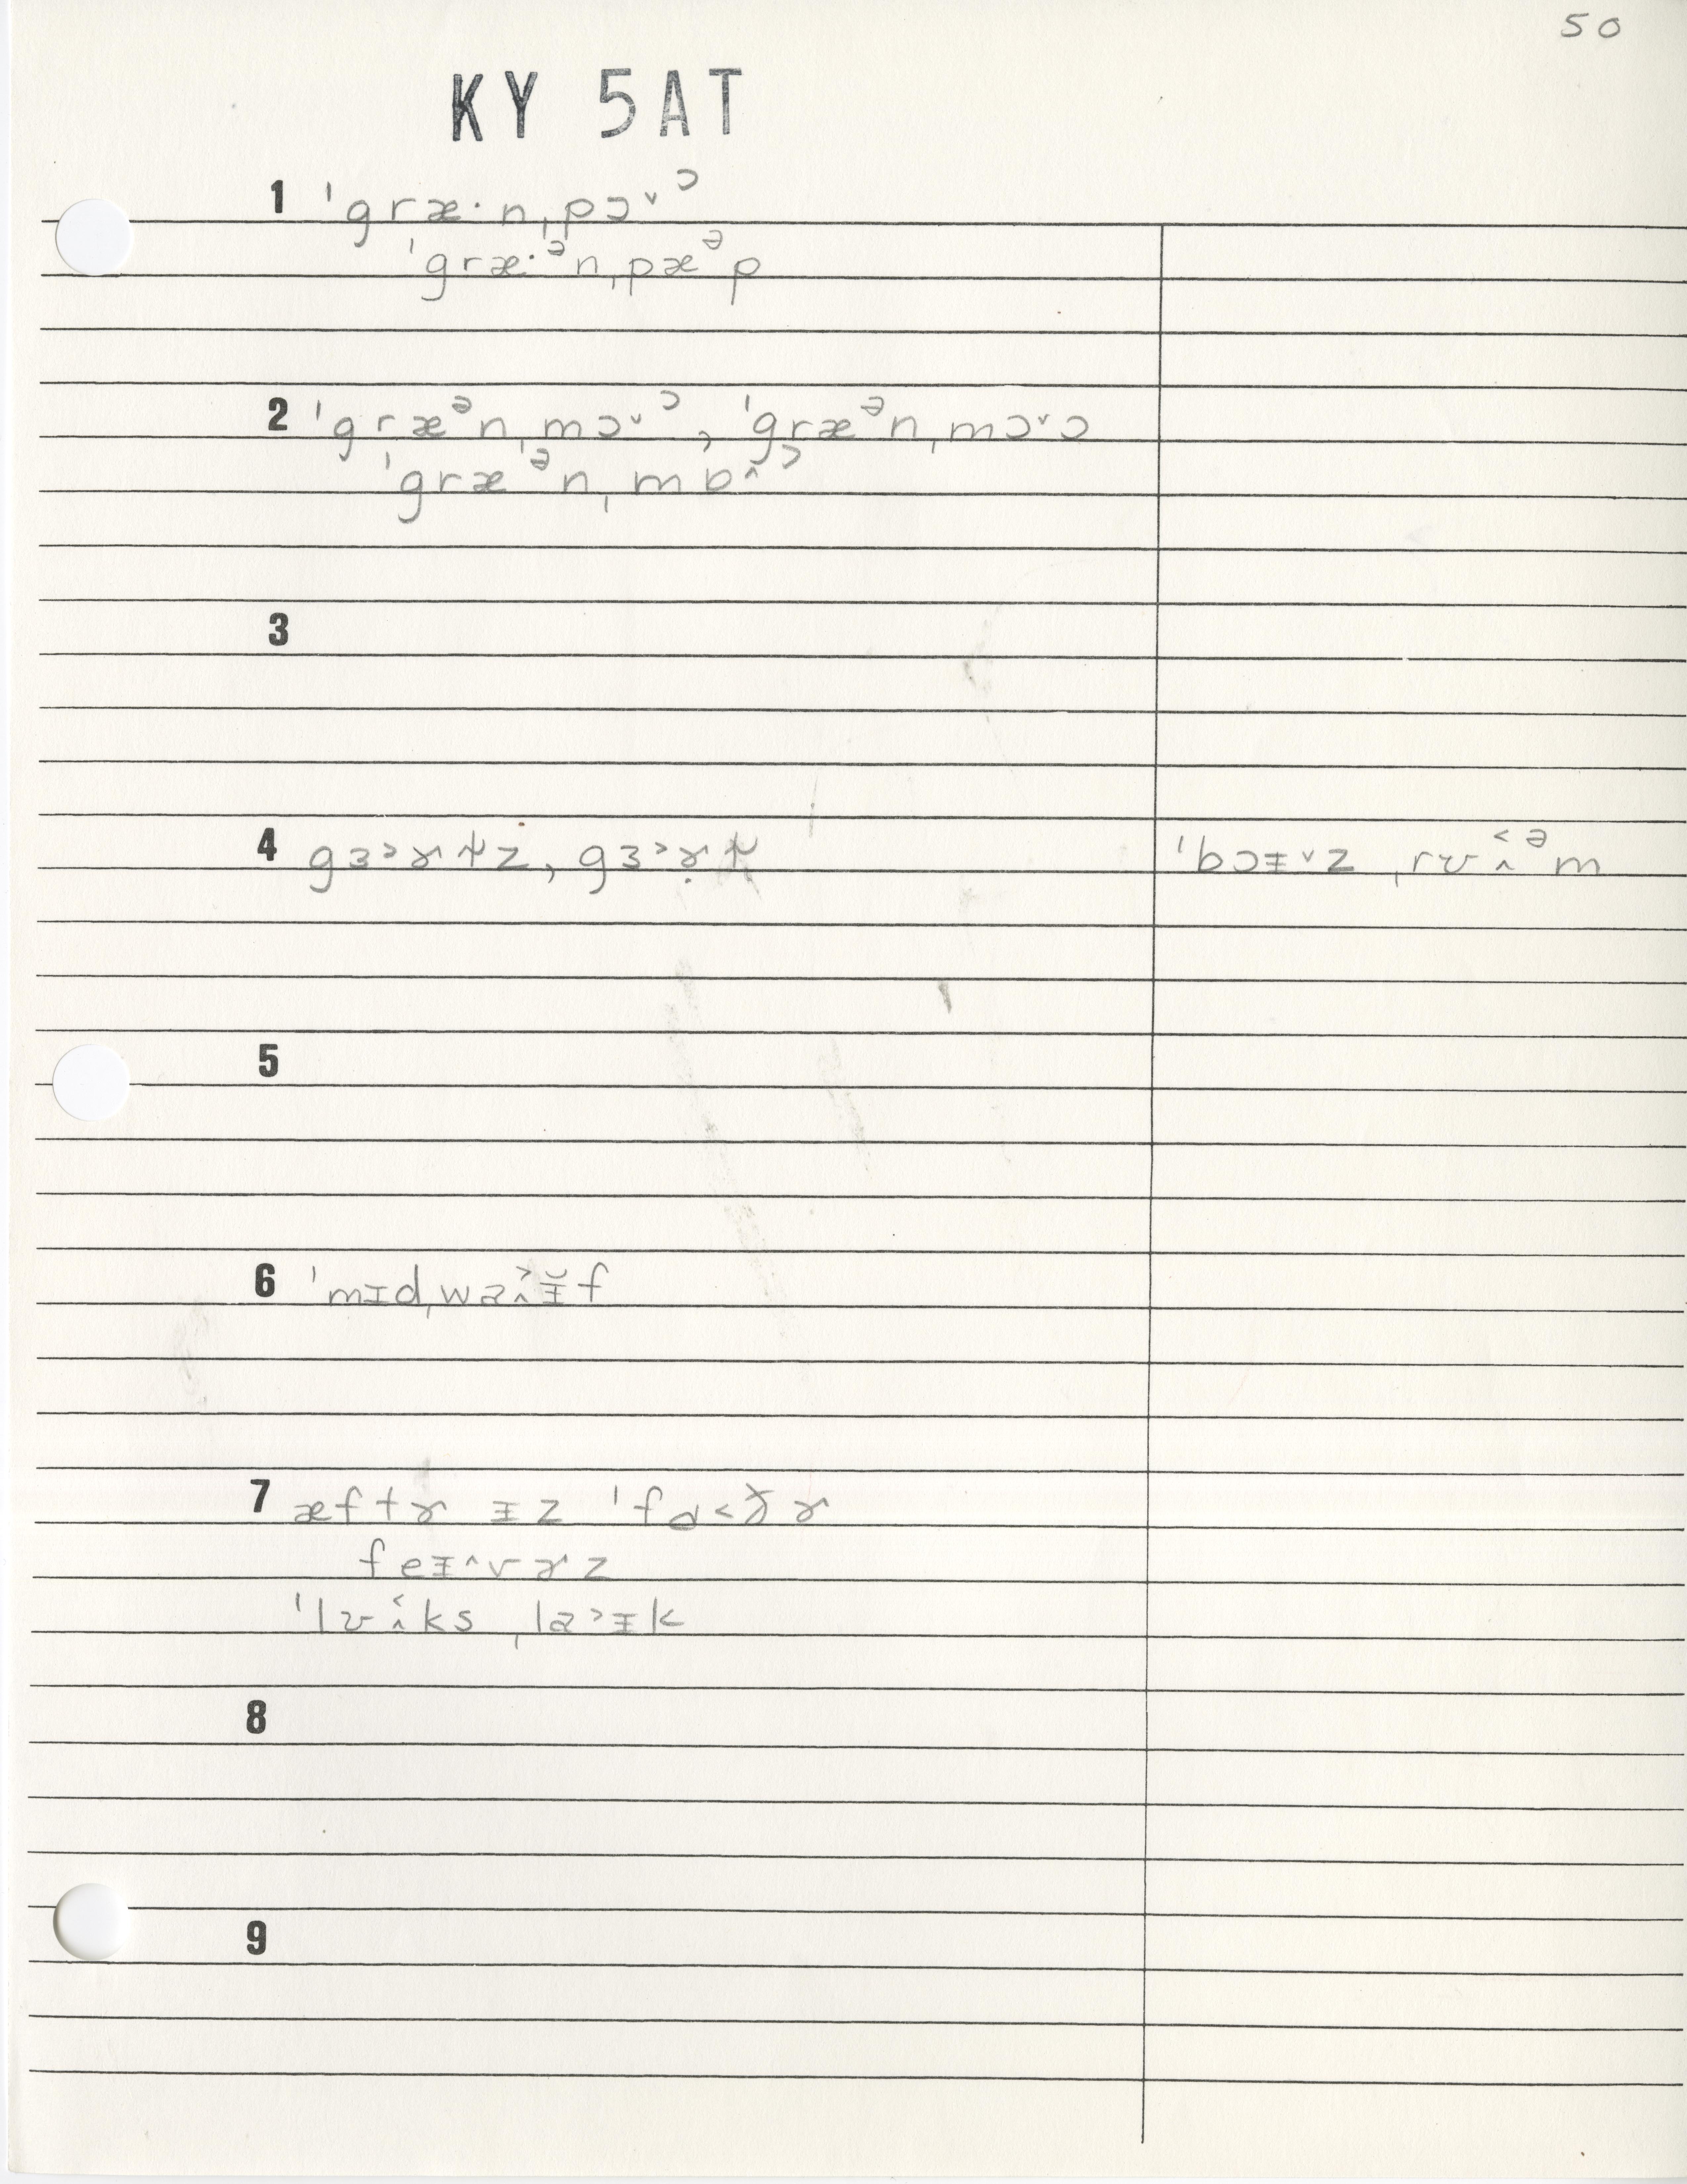 50
KY 5AT
1 ˈgræ·nˌpɔ˅ᵓ
ˈgræ·ᵊnˌpæᵊp
2 ˈgræᵊnˌmɔ˅ᵓ, ˈgræᵊnˌmɔ˅ɔ
ˈgræᵊnˌmɒ˄ᵓ
3
4 gɜ˃ɚɫz, gɜ˃ɚ̣ɫ ˈbɔɪ˅z ˌrʊ˄˂ᵊm
5
6 ˈmɪdˌwa˄˃ɪ̆f
7 æftɚ ɪz ˈfɑ˂ðɚ
feɪ˄vɚz
ˈlʊ˄˂ks ˌla˃ɪk
8
9